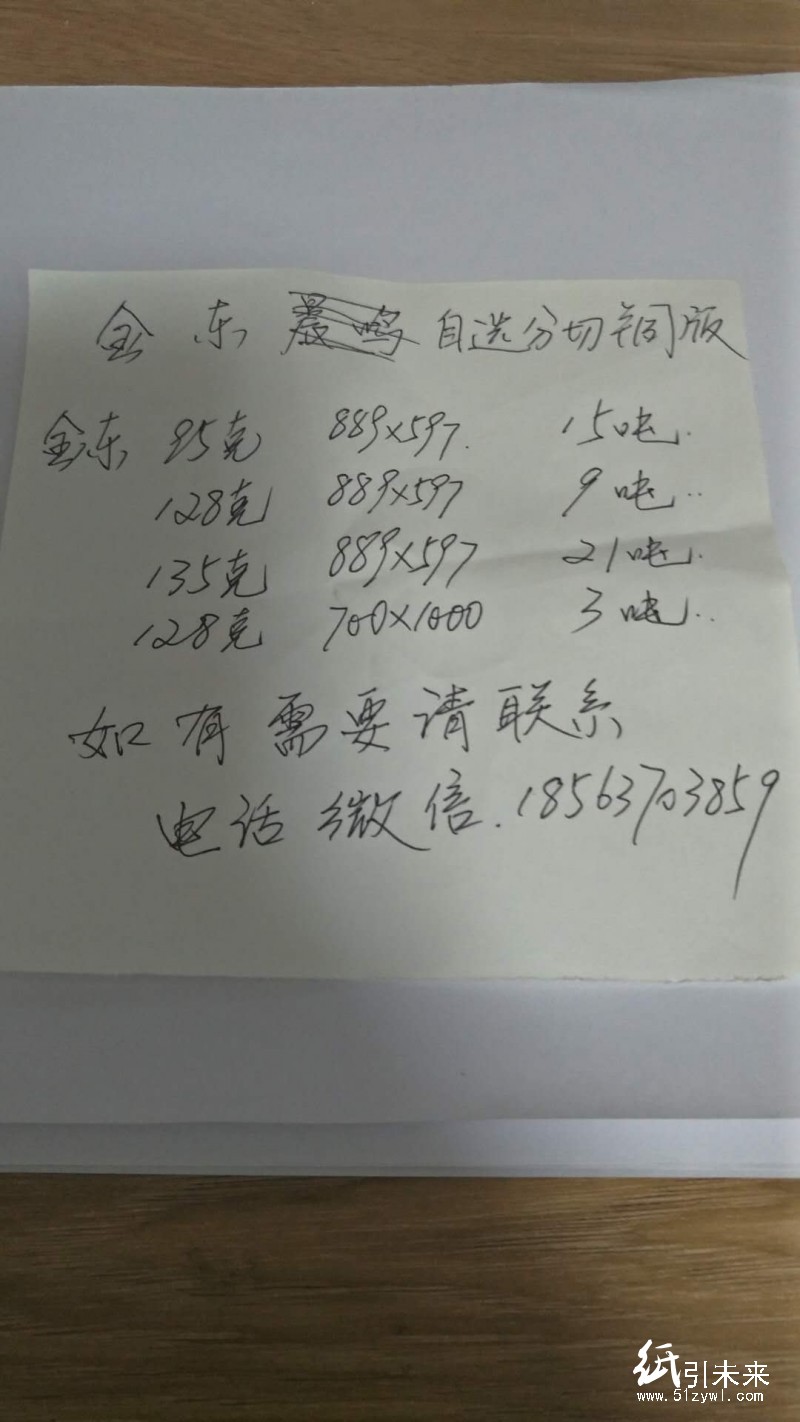 金东 晨鸣 自选分切铜版
金东 95克 889x597. 15吨.
128克 889x597 9吨..
135克 889x597 21吨.
128克 700x1000 3吨..
如有需要请联系
电话微信.18563703859
纸引未来
www.51zywl.com